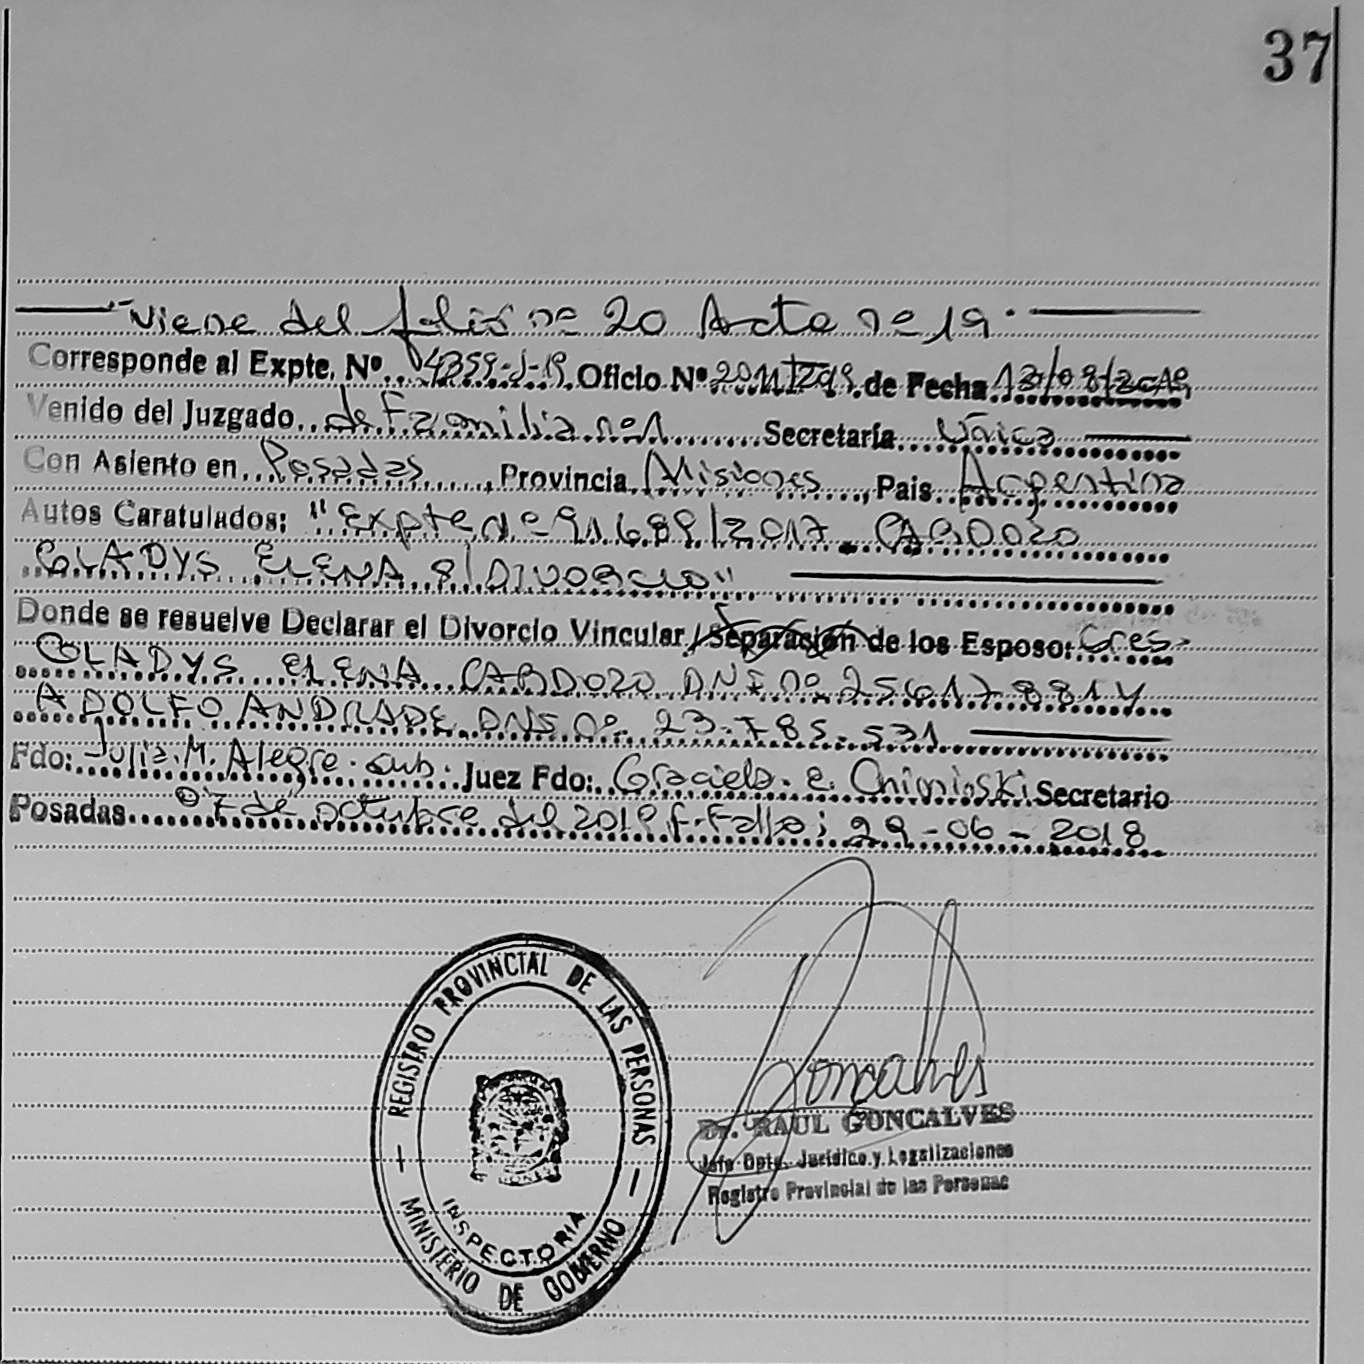 37
Viene del folio nº 20 Acta nº 19.
Corresponde al Expte. Nº 4359-J-19 Oficio Nº 2011/2019 de Fecha 13/08/2019
Venido del Juzgado de Familia nº1 Secretaría Única
Con Asiento en Posadas, Provincia Misiones, Pais Argentina
Autos Caratulados: "Expte nº 91689/2017 CARDOZO
GLADYS ELENA S/DIVORCIO"
Donde se resuelve Declarar el Divorcio Vincular/Separación de los Esposos: Cres-
GLADYS ELENA CARDOZO DNI nº 25617881 Y
ADOLFO ANDRADE DNI nº 23-785-531
Fdo: Julia.M. Alegre. sub. Juez Fdo: Graciela. E. Chiminski Secretario
Posadas 07 de octubre del 2019 f. Fallo; 29-06-2018
REGISTRO PROVINCIAL DE LAS PERSONAS
INSPECTORIA
MINISTERIO DE GOBIERNO
Goncalves
Dr. RAUL GONCALVES
Jefe Dpto. Jurídico y Legalizaciones
Registro Provincial de las Personas